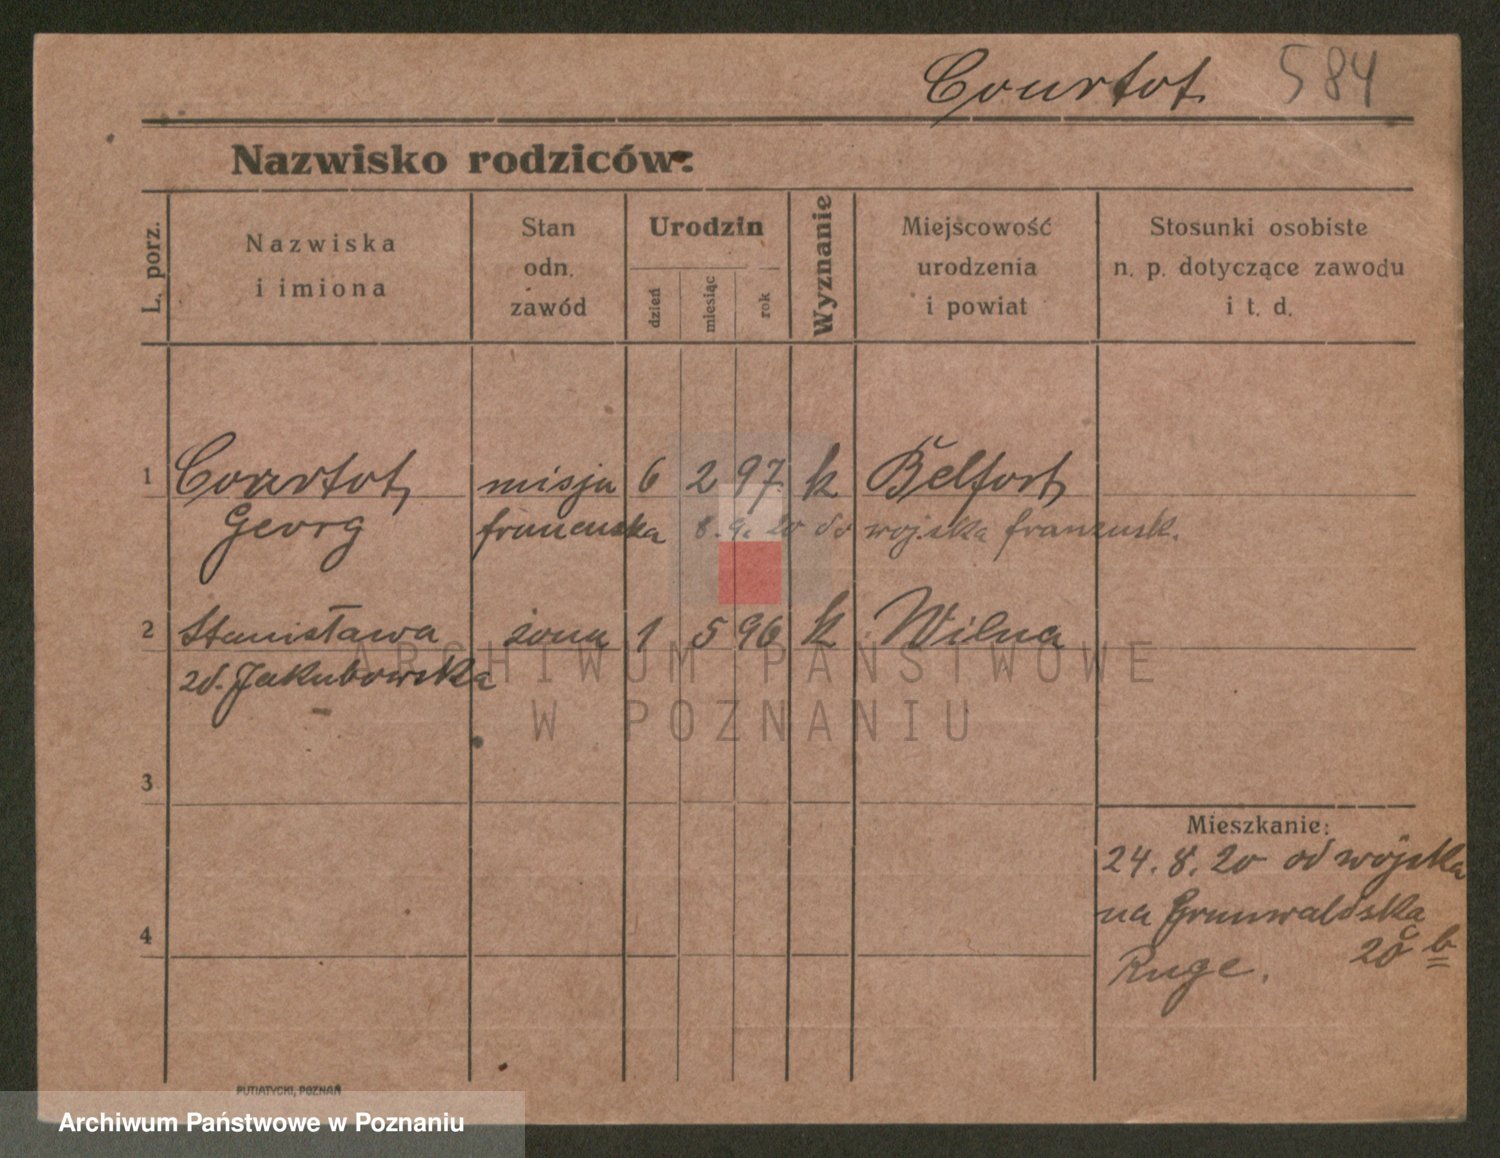 Courtot 584
Nazwisko rodziców:
L. porz.
Nazwiska
i imiona
Stan
odn.
zawód
Urodzin
dzień
miesiąc
rok
Wyznanie
Miejscowość
urodzenia
i powiat
Stosunki osobiste
n. p. dotyczące zawodu
i t. d.
1 Courtot misja 6 2 97 k Belfort
Georg francuska 8.9.20 do wojska franzusk.
2 Stanisława żona 1 5 96 k Wilna
zd. Jakubowska
ARCHIWUM PAŃSTWOWE
W POZNANIU
3
Mieszkanie:
24.8.20 od wojska
na Grunwaldska
4
20 b
Ruge.
PUTIATYCKI, POZNAŃ
Archiwum Państwowe w Poznaniu